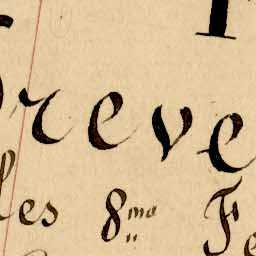 reve
les 8.ma Fe